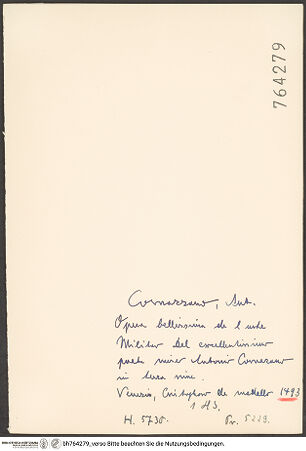 764279
Cornazzano, Ant.
Opera bellissima de l'arte
Militar del excellentissimo
poeta miser Antonio Cornazano
in terza rima.
Venezia, Christophoro de mandello 1493
H. 5730. Pr. 5229.
bh764279_verso Bitte beachten Sie die Nutzungsbedingungen.